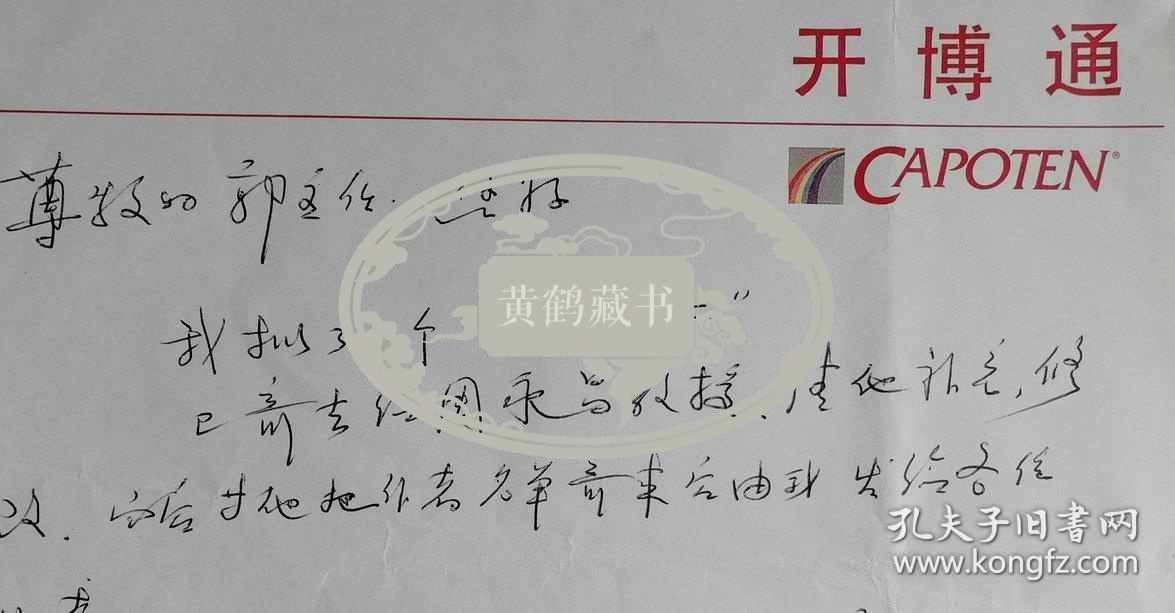 开博通
CAPOTEN®
尊敬的郭主任 您好
我拟了个 "
已寄去给周永昌教授，请他补充，修
改. 而后 他把作者名单寄来后由我发给各位
黄鹤藏书
孔夫子旧书网
www.kongfz.com